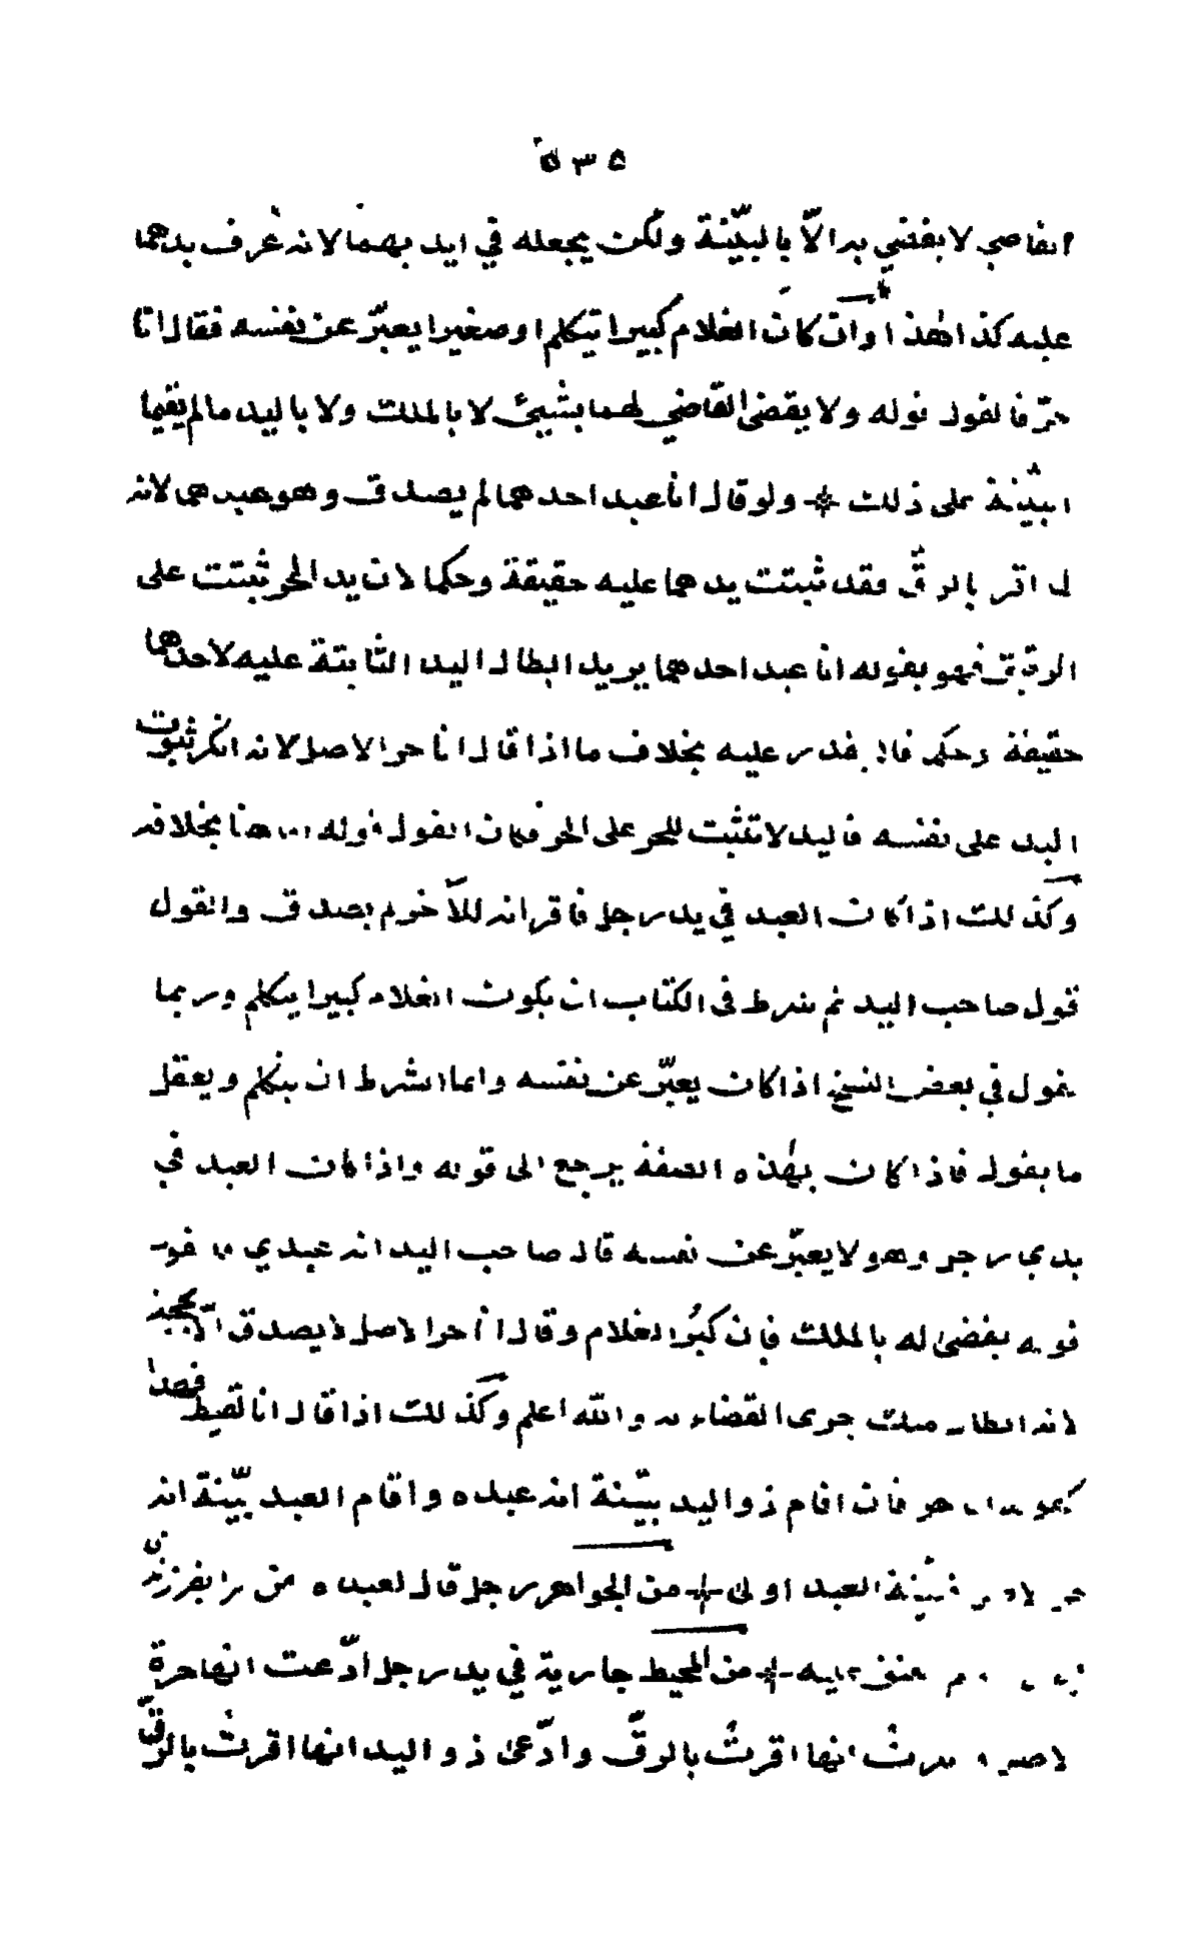 ٥٣٥
القاضي لا يقضي بد الاّ بالبيّنة ولكن يجعله في ايديهما لانه عُرف يدهما
عليه كذا هٰذا * وان كان الغلام كبيرا يتكلم او صغيرا يعبّر عن نفسه فقال انا
حرّ فالقول قوله ولا يقضى القاضي لهما بشيئ لا بالملك ولا باليد ما لم يقيما
البيّنة على ذلك * ولو قال انا عبد احدهما لم يصدق وهو عبدهما لانه
لما اقر بالرق فقد ثبتت يدهما عليه حقيقة وحكما لان يد الحر ثبتت على
الرقيق فهو بقوله انا عبد احدهما يريد ابطال اليد الثابتة عليه لاحدهما
حقيقة وحكما فلا يقدر عليه بخلاف ما اذا قال انا حر الاصل لانه انكر ثبوت
اليد على نفسه فاليد لا تثبت للحر على الحر فكان القول قوله اما هنا بخلافه
وكذلك اذا كان العبد في يد رجل فاقر انه للآخر لم يصدق والقول
قول صاحب اليد ثم شرط في الكتاب ان يكون الغلام كبيرا يتكلم وربما
يقول في بعض النسخ اذا كان يعبّر عن نفسه وانما الشرط ان يتكلم ويعقل
ما يقول فاذا كان بهٰذه الصفة يرجع الى قوله واذا كان العبد في
يدي رجل وهو لا يعبّر عن نفسه قال صاحب اليد انه عبدي فالقول
قوله يقضىٰ له بالملك فان كبُر الغلام وقال انا حر الاصل لا يصدق الا بحجة
لانه ابطال ملك جرى القضاء به والله اعلم وكذلك اذا قال انا لقيط فهذا
كقوله انا حر فان اقام ذو اليد بيّنة انه عبده واقام العبد بيّنة انه
حر الاصل فبيّنة العبد اولىٰ * من الجواهر رجل قال لعبده من را بفرزندى
عتق عليه * من المحيط جارية في يد رجل ادّعت انها حرة
الاصل انها اقرتْ بالرقّ وادّعىٰ ذو اليد انها اقرتْ بالرقّ